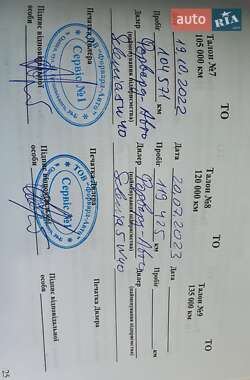 ТО
Талон №7
105 000 км
19.10.2022
Дата
Пробіг 101 571 км
Дилер Форвард-Авто
(найменування підприємства)
Selenia 5W40
Печатка Дилера
ТОВ «Форвард-Авто»
Сервіс №1
Підпис відповідальної
особи
ТО
Талон №8
120 000 км
20.07.2023
Дата
Пробіг 119 425 км
Дилер Форвард-Авто
(найменування підприємства)
Selenia 5W40
Печатка Дилера
ТОВ «Форвард-Авто»
Сервіс №1
Підпис відповідальної
особи
ТО
Талон №9
135 000 км
Дата
Пробіг км
Дилер
(найменування підприємства)
Печатка Дилера
Підпис відповідальної
особи
AUTO
RIA
.com